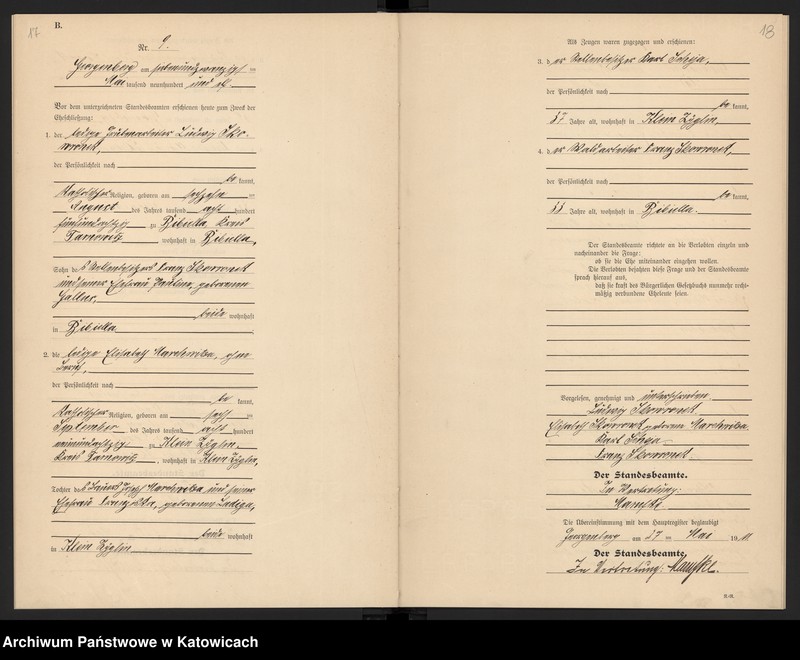 17
B.
Nr. 9.
Georgenberg am siebenundzwanzigsten
Mai tausend neunhundert und elf.
Vor dem unterzeichneten Standesbeamten erschienen heute zum Zweck der
Eheschließung:
1. der ledige Ludwig Skowronek,
der Persönlichkeit nach
be kannt,
katholischer Religion, geboren am sechzehnten
August des Jahres tausend acht hundert
fünfundachtzig zu Bibiella, Kreis
Tarnowitz, wohnhaft in Bibiella,
Sohn des Stellenbesitzers Franz Skowronek
und seiner Ehefrau Pauline, geborenen
beide wohnhaft
in Bibiella.
2. die ledige Elisabeth Marchewka, ohne
Beruf,
der Persönlichkeit nach
be kannt,
katholischer Religion, geboren am sechsten
September des Jahres tausend acht hundert
neunundachtzig zu Klein Zyglin,
Kreis Tarnowitz, wohnhaft in Klein Zyglin,
Tochter des Bauers Josef Marchewka und seiner
Ehefrau Franziska, geborenen
beide wohnhaft
in Klein Zyglin.
18
Als Zeugen waren zugezogen und erschienen:
3. der Stellenbesitzer Karl
der Persönlichkeit nach
be kannt,
Jahre alt, wohnhaft in Klein Zyglin,
4. der Waldarbeiter Franz Skowronek,
der Persönlichkeit nach
be kannt,
Jahre alt, wohnhaft in Bibiella.
Der Standesbeamte richtete an die Verlobten einzeln und
nacheinander die Frage:
ob sie die Ehe miteinander eingehen wollen.
Die Verlobten bejahten diese Frage und der Standesbeamte
sprach hierauf aus,
daß sie kraft des Bürgerlichen Gesetzbuchs nunmehr recht-
mäßig verbundene Eheleute seien.
Vorgelesen, genehmigt und unterschrieben.
Ludwig Skowronek
Elisabeth Skowronek geborene Marchewka
Karl
Franz Skowronek.
Der Standesbeamte.
In Vertretung:
Die Übereinstimmung mit dem Hauptregister beglaubigt
Georgenberg am 27 ten Mai 1911
Der Standesbeamte.
In Vertretung:
Archiwum Państwowe w Katowicach